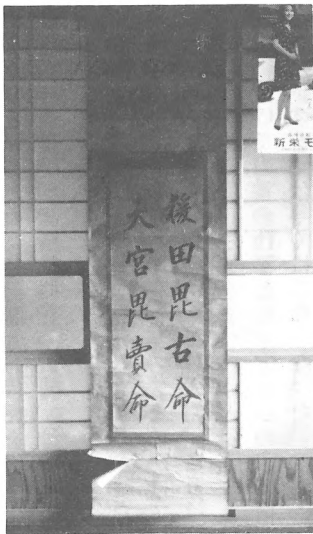 猨田毘古命
大宮毘賣命
新栄モ